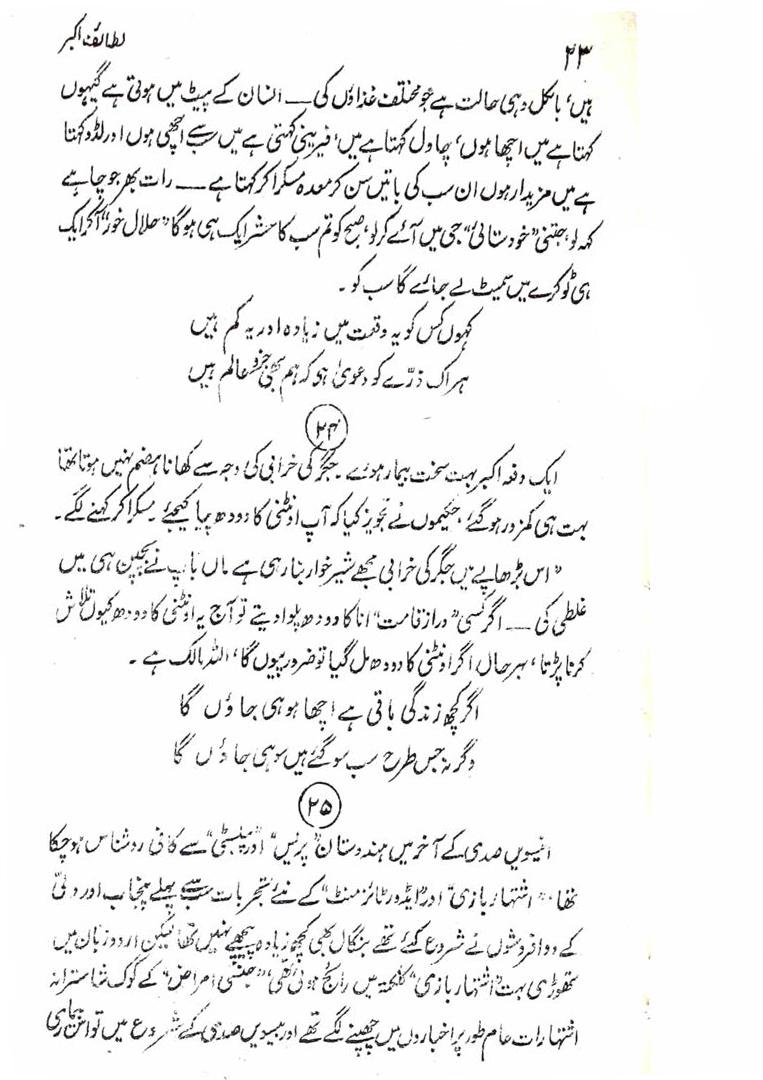 ۲۳ لطائف اکبر
ہیں‘ بالکل وہی حالت ہے جو مختلف غذاؤں کی — انسان کے پیٹ میں ہوتی ہے گیہوں
کہتا ہے میں اچھا ہوں‘ چاول کہتا ہے میں‘ فیرینی کہتی ہے میں سب سے اچھی ہوں اور لڈو کہتا
ہے میں مزیدار ہوں ان سب کی باتیں سن کر معدہ مسکرا کر کہتا ہے — رات بھر جو چاہے
کہہ لو‘ جتنی ”خود ستائی“ جی میں آئے کر لو‘ صبح کو تم سب کا حشر ایک ہی ہو گا ”حلال خور“ آکر ایک
ہی ٹوکرے میں سمیٹ لے جائے گا سب کو ۔
کہوں کس کو یہ وقعت میں زیادہ اور یہ کم ہیں
ہر اک ذرّے کو دعویٰ ہی کہ ہم بھی جزوِ عالم ہیں
۲۴
ایک دفعہ اکبر بہت سخت بیمار ہوئے ۔ جگر کی خرابی کی وجہ سے کھانا ہضم نہیں ہوتا تھا
بہت ہی کمزور ہو گئے‘ حکیموں نے تجویز کیا کہ آپ اونٹنی کا دودھ پیا کیجئے ۔ مسکرا کر کہنے لگے ۔
”اس بڑھاپے میں جگر کی خرابی مجھے شیر خوار بنا رہی ہے ماں باپ نے بچپن ہی میں
غلطی کی — اگر کسی ”دراز قامت“ انا کا دودھ پلوا دیتے تو آج یہ اونٹنی کا دودھ کیوں تلاش
کرنا پڑتا‘ بہر حال اگر اونٹنی کا دودھ مل گیا تو ضرور پیوں گا‘ اللہ مالک ہے ۔
اگر کچھ زندگی باقی ہے اچھا ہو ہی جاؤں گا
وگرنہ جس طرح سب سو گئے ہیں سو ہی جاؤں گا
۲۵
انیسویں صدی کے آخر میں ہندوستان ”پریس“ اور ”پبلسٹی“ سے کافی روشناس ہو چکا
تھا‘ ”اشتہار بازی“ اور ”ایڈورٹائزمنٹ“ کے نئے تجربات سب سے پہلے پنجاب اور دلّی
کے دوا فروشوں نے شروع کئے تھے بنگال بھی کچھ زیادہ پیچھے نہیں تھا لیکن اردو زبان میں
تھوڑی بہت ”اشتہار بازی“ کلکتہ میں رائج ہوئی تھی‘ ”جنسی امراض“ کے کوک شاسترانہ
اشتہارات عام طور پر اخباروں میں چھپنے لگے تھے اور بیسویں صدی کے شروع میں تو اس بیماری